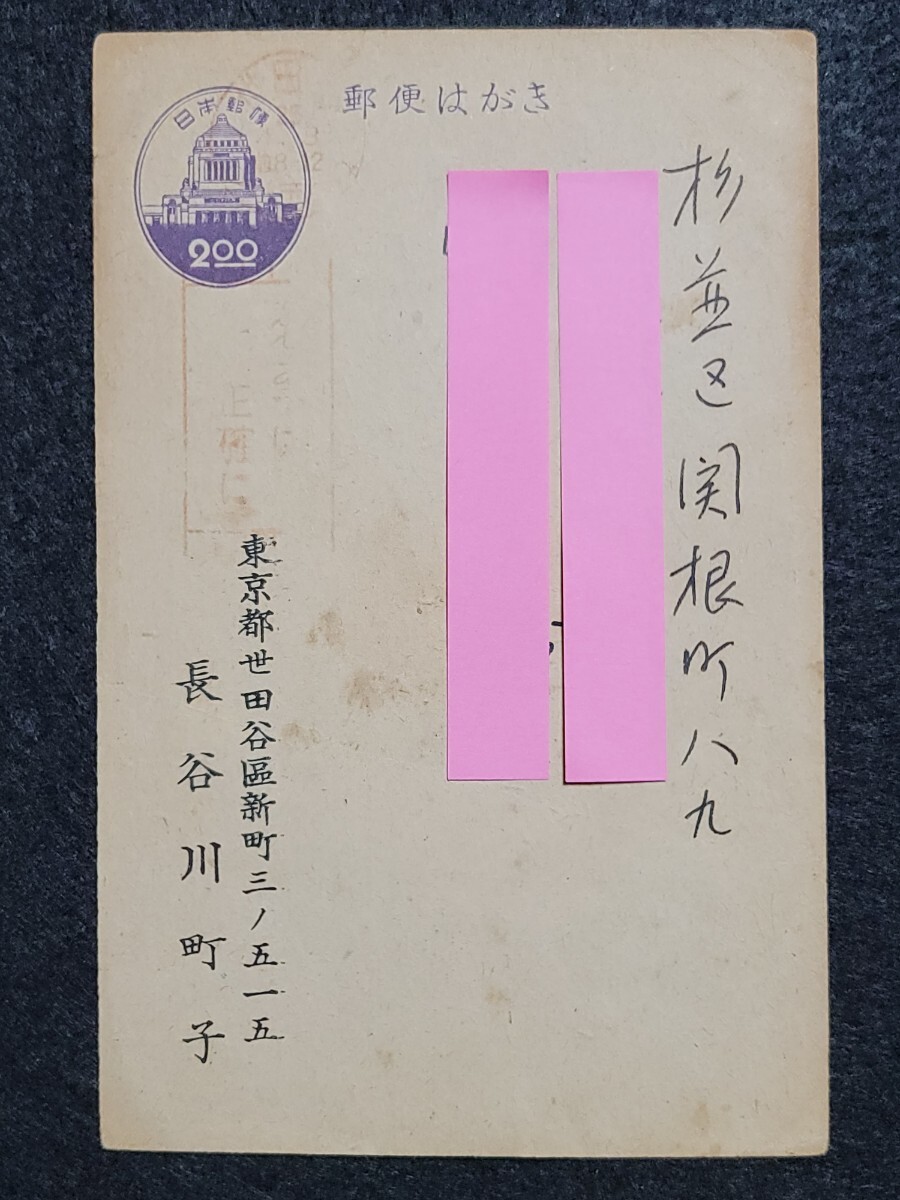 郵便はがき
日本郵便
2.00
杉並区関根町八九
東京都世田谷區新町三ノ五一五
長谷川町子